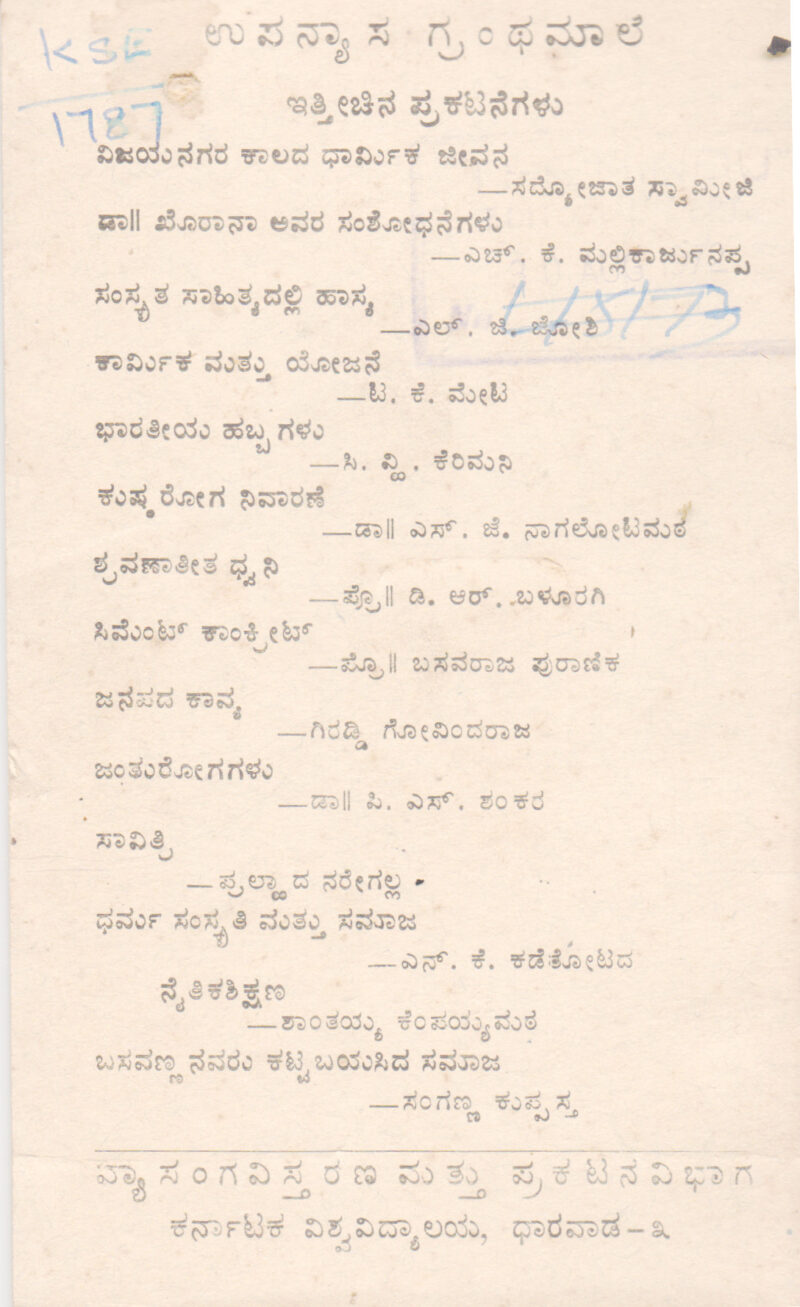 ಉಪನ್ಯಾಸ ಗ್ರಂಥಮಾಲೆ
KSE
1787
ಇತ್ತೀಚಿನ ಪ್ರಕಟನೆಗಳು
ವಿಜಯನಗರ ಕಾಲದ ಧಾರ್ಮಿಕ ಜೀವನ
—ಸದ್ಯೋಜಾತ ಸ್ವಾಮೀಜಿ
ಡಾ॥ ಖೊರಾನಾ ಅವರ ಸಂಶೋಧನೆಗಳು
—ಎಚ್. ಕೆ. ಮಲ್ಲಿಕಾರ್ಜುನಪ್ಪ
ಸಂಸ್ಕೃತ ಸಾಹಿತ್ಯದಲ್ಲಿ ಹಾಸ್ಯ
—ಎಲ್. ಜೆ. ಜೋಶಿ
ಕಾರ್ಮಿಕ ಮತ್ತು ಯೋಜನೆ
—ಟಿ. ಕೆ. ಮೇಟಿ
ಭಾರತೀಯ ಹಬ್ಬಗಳು
—ಸಿ. ವ್ಹಿ. ಕೆರಿಮನಿ
ಕುಷ್ಠರೋಗ ನಿವಾರಣೆ
—ಡಾ॥ ಎಸ್. ಜೆ. ನಾಗಲೋಟಿಮಠ
ಶ್ರವಣಾತೀತ ಧ್ವನಿ
—ಪ್ರೊ॥ ಡಿ. ಆರ್. ಬಳೂರಗಿ
ಸಿಮೆಂಟ್ ಕಾಂಕ್ರೀಟ್
—ಪ್ರೊ॥ ಬಸವರಾಜ ಪುರಾಣಿಕ
ಜನಪದ ಕಾವ್ಯ
—ಗಿರಡ್ಡಿ ಗೋವಿಂದರಾಜ
ಜಂತುರೋಗಗಳು
—ಡಾ॥ ಪಿ. ಎಸ್. ಶಂಕರ
ಸಾವಿತ್ರಿ
—ಪ್ರಲ್ಹಾದ ನರೇಗಲ್ಲ
ಧರ್ಮ ಸಂಸ್ಕೃತಿ ಮತ್ತು ಸಮಾಜ
—ಎನ್. ಕೆ. ಕಡೆತೋಟದ
ನೈತಿಕಶಿಕ್ಷಣ
—ಶಾಂತಯ್ಯ ಕೆಂಪಯ್ಯಮಠ
ಬಸವಣ್ಣನವರು ಕಟ್ಟಬಯಸಿದ ಸಮಾಜ
—ಸಂಗಣ್ಣ ಕುಪ್ಪಸ್ತ
ವ್ಯಾಸಂಗವಿಸ್ತರಣ ಮತ್ತು ಪ್ರಕಟನವಿಭಾಗ
ಕರ್ನಾಟಕ ವಿಶ್ವವಿದ್ಯಾಲಯ, ಧಾರವಾಡ-೩